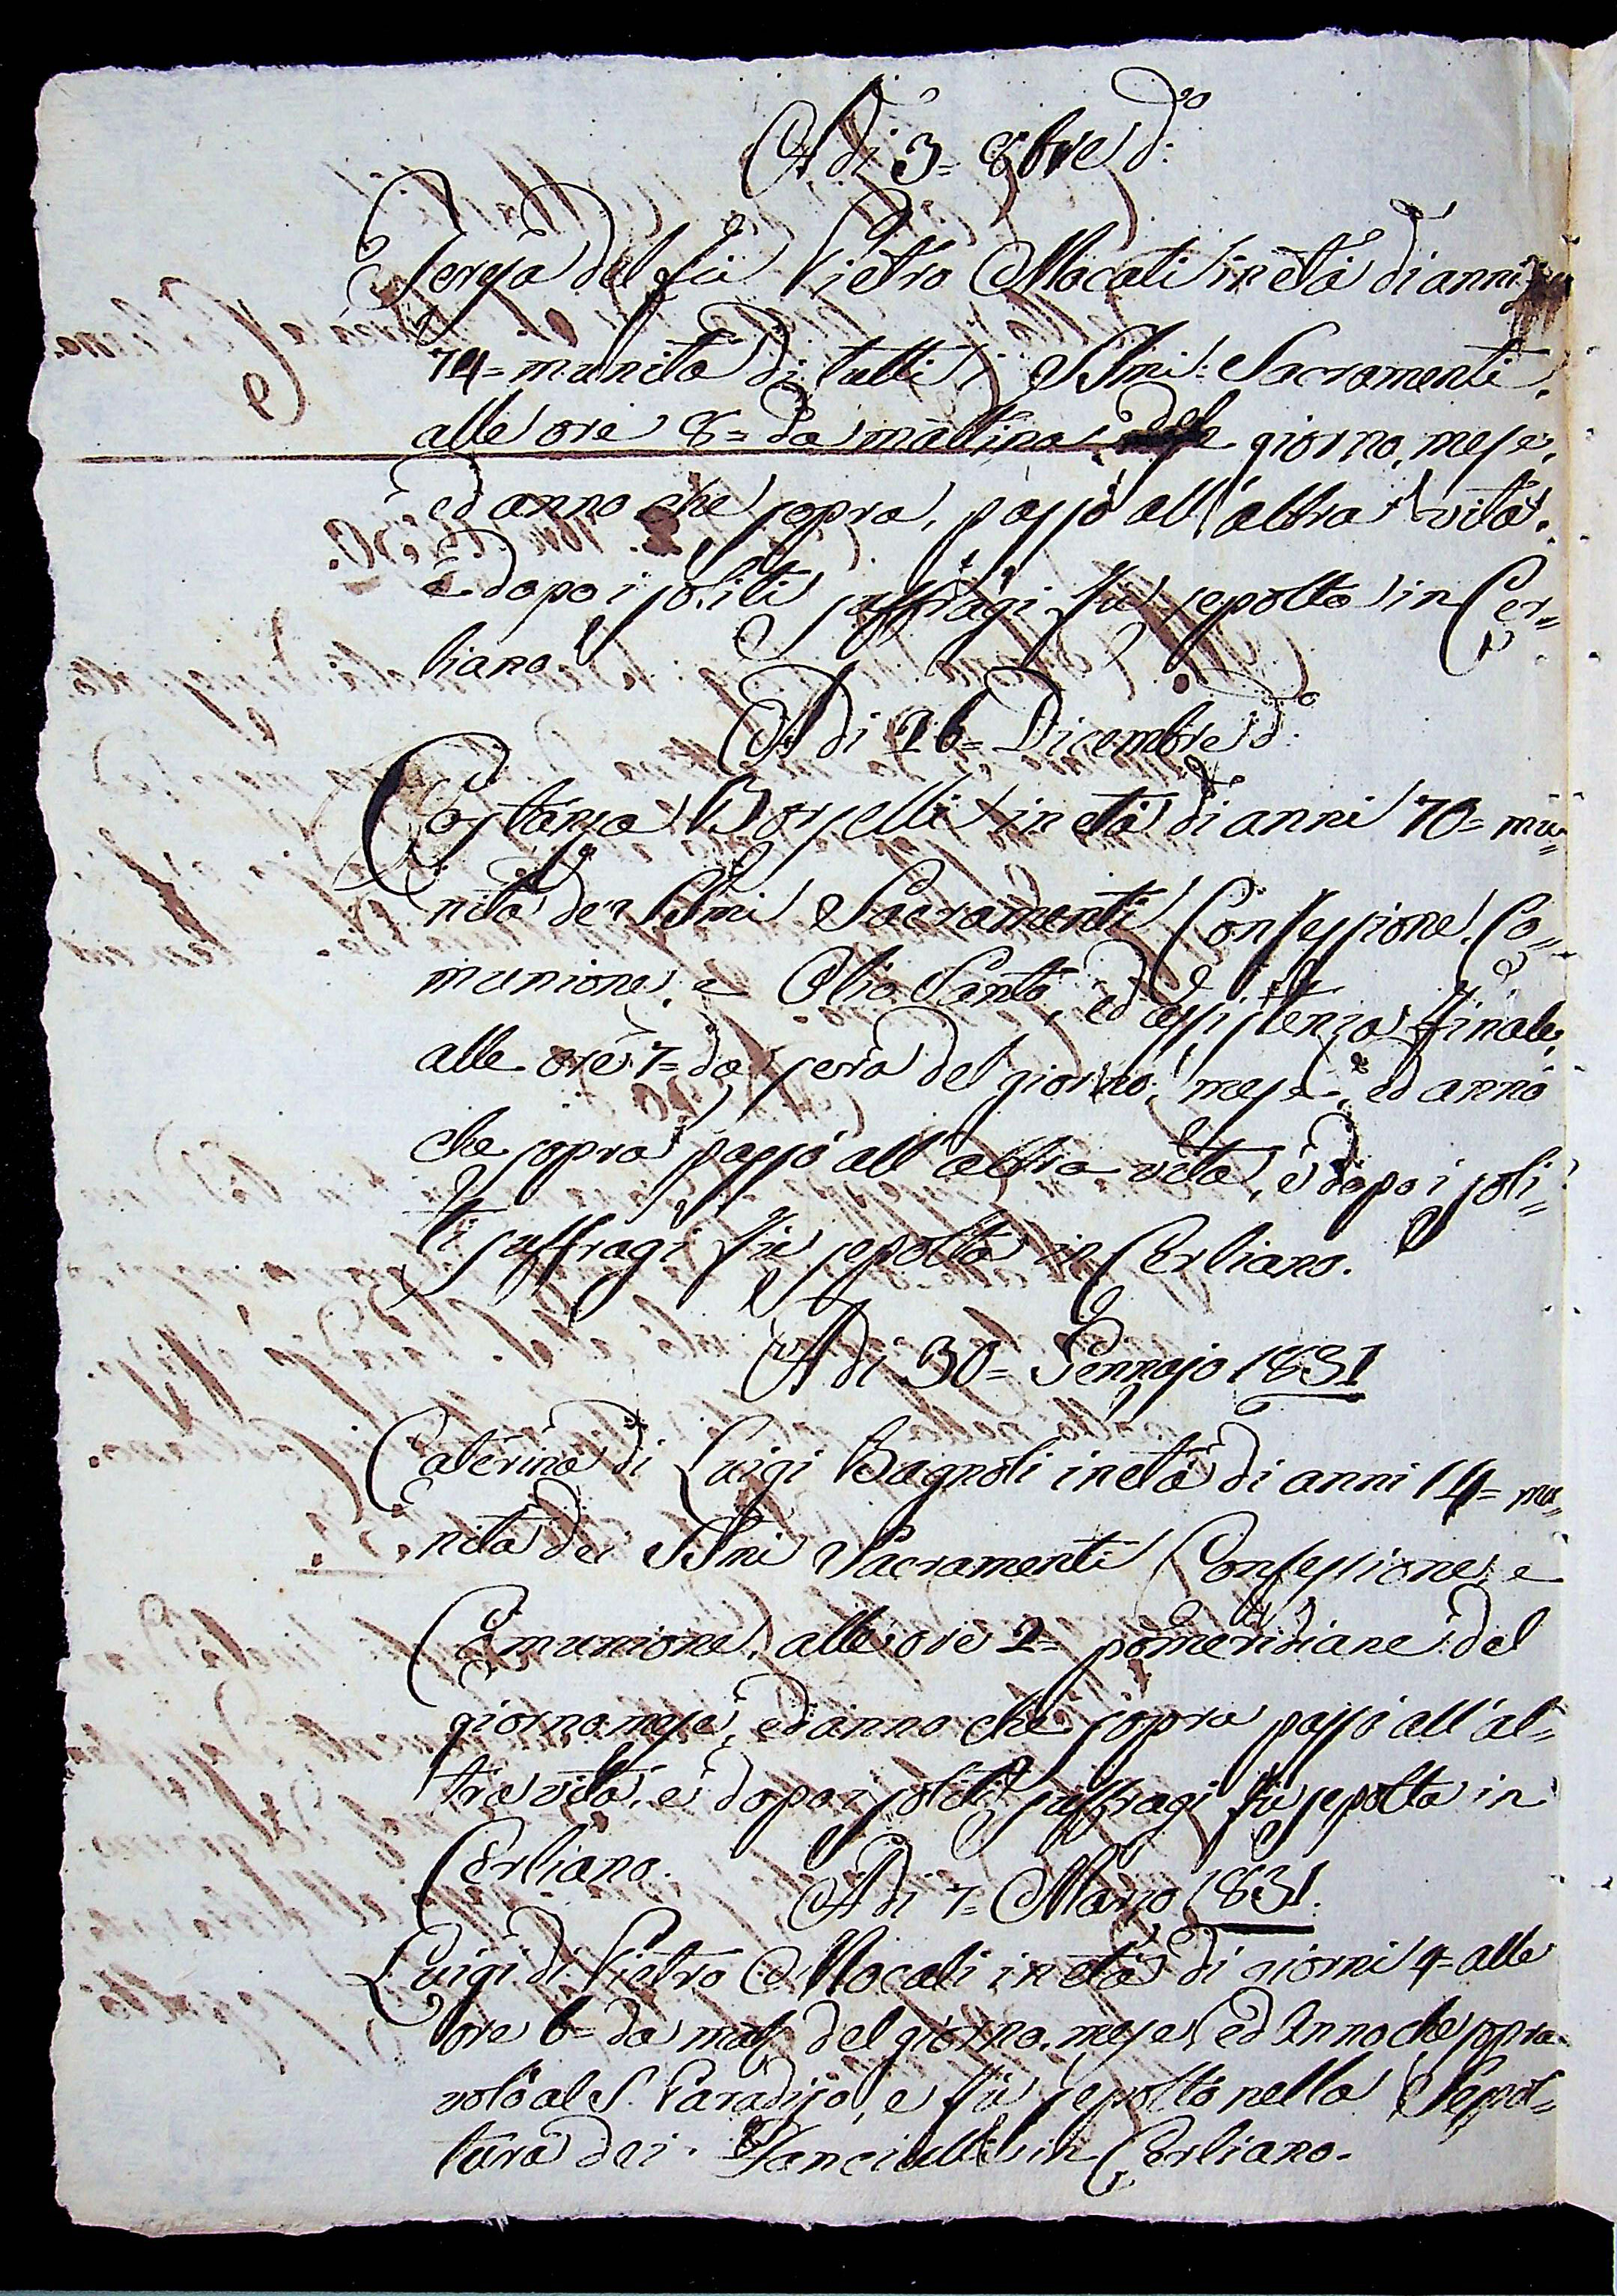 Adi 3= 8bre d:o
Teresa del fù Pietro Mocali in età di anni
74= munita di tutti i SSmi: Sacramenti,
alle ore 8= da mattina, del giorno, mese,
ed anno che sopra, passò all'altra vita,
e dopo i soliti suffragi fù sepolta in Cer=
liano
Adi 26= Dicembre d:o
Costanza Borselli in età di anni 70= mu=
nita de SSmi Sacramenti Confessione, Co=
munione, e Olio Santo, ed assistenza finale,
alle ore 7= da sera del giorno, mese, ed anno
che sopra passò all'altra vita, e dopo i soli=
ti suffragi fù sepolta in Cerliano.
Adi 30= Gennajo 1831
Caterina di Luigi Bagnoli in età di anni 14= mu=
nita dei SSmi Sacramenti Confessione, e
Comunione, alle ore 2= pomeridiane del
giorno mese, ed anno che sopra passò all'al=
tra vita, e dopo i soliti suffragi fù sepolta in
Cerliano.
Adi 7= Marzo 1831.
Luigi di Pietro Mocali in età di giorni 4= alle
ore 6= da matt del giorno, mese, ed Anno che sopra
volò al S. Paradiso, e fù sepolto nella Sepol=
tura dei Fanciulli in Cerliano.